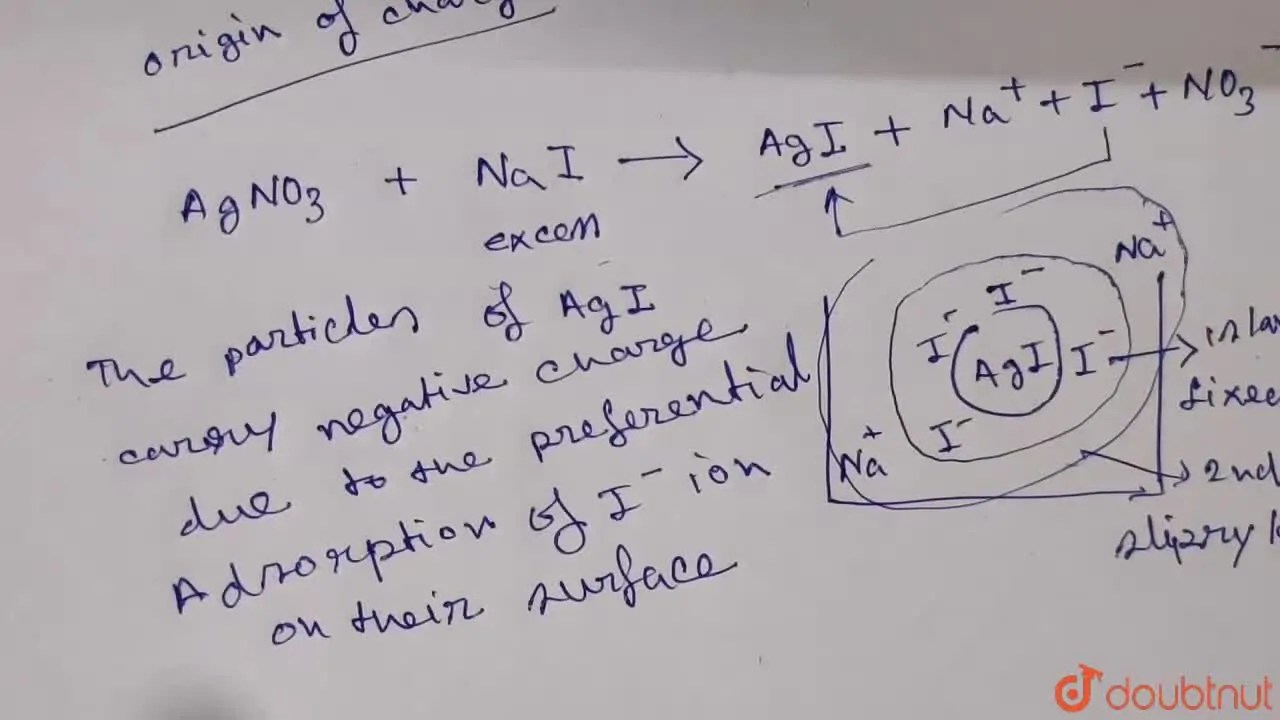 origin of charg
AgNO3 + NaI → AgI + Na+ + I- + NO3-
excess
The particles of AgI
carry negative charge
due to the preferential
Adsorption of I- ion
on their surface
Na+
I-
I- AgI I-
I-
Na+
fixed
2nd
doubtnut